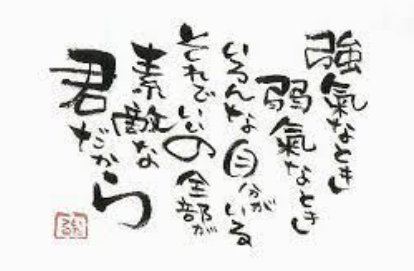 強氣なとき
弱氣なとき
いろんな自分がいる
それでいいの全部が
素敵な
君だから